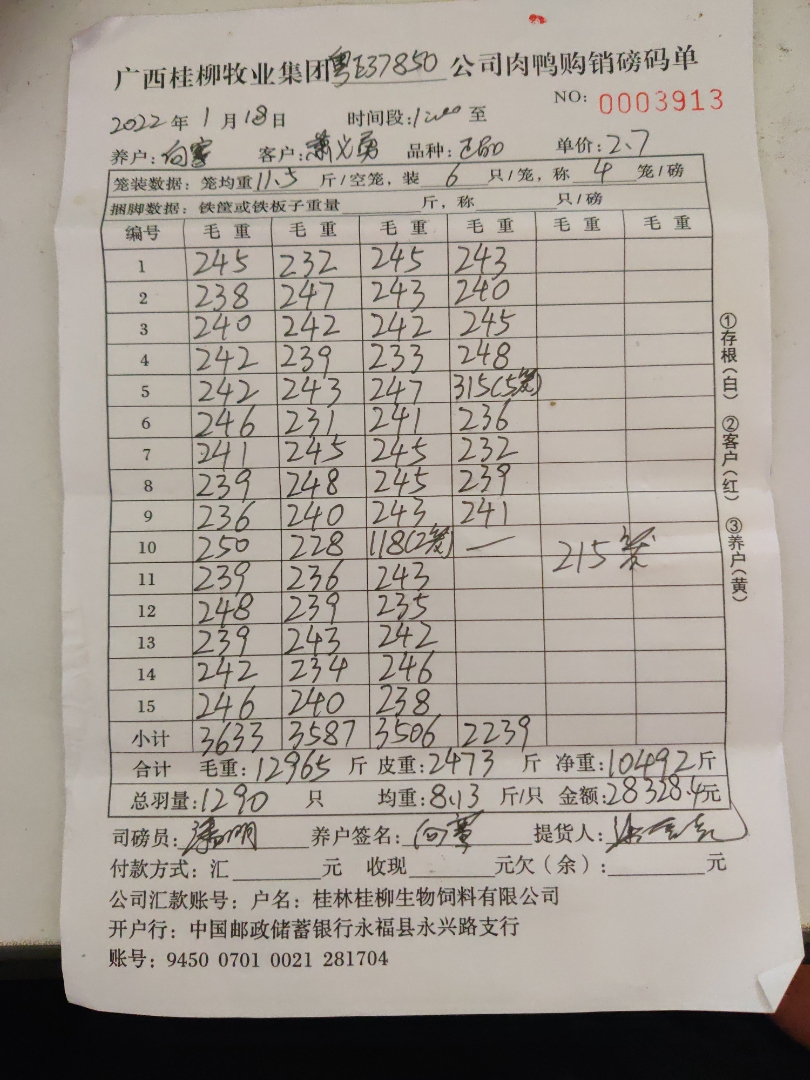 广西桂柳牧业集团粤E37850公司肉鸭购销磅码单
NO: 0003913
2022年1月18日 时间段: 至
养户: 向 客户:萧义勇 品种:正品 单价:2.7
笼装数据: 笼均重11.5斤/空笼, 装6只/笼, 称4笼/磅
捆脚数据: 铁筐或铁板子重量 斤, 称 只/磅
编号 毛重 毛重 毛重 毛重 毛重 毛重
1 245 232 245 243
2 238 247 243 240
3 240 242 242 245
4 242 239 233 248
5 242 243 247 315(5笼)
6 246 231 241 236
7 241 245 245 232
8 239 248 245 239
9 236 240 243 241
10 250 228 118(2笼) — 215笼
11 239 236 243
12 248 239 235
13 239 243 242
14 242 234 246
15 246 240 238
小计 3633 3587 3506 2239
合计 毛重:12965斤 皮重:2473斤 净重:10492斤
总羽量:1290只 均重:8.13斤/只 金额:28328.4元
司磅员: 养户签名:向 提货人:
付款方式: 汇 元 收现 元欠(余): 元
公司汇款账号: 户名: 桂林桂柳生物饲料有限公司
开户行: 中国邮政储蓄银行永福县永兴路支行
账号: 9450 0701 0021 281704
①存根(白) ②客户(红) ③养户(黄)